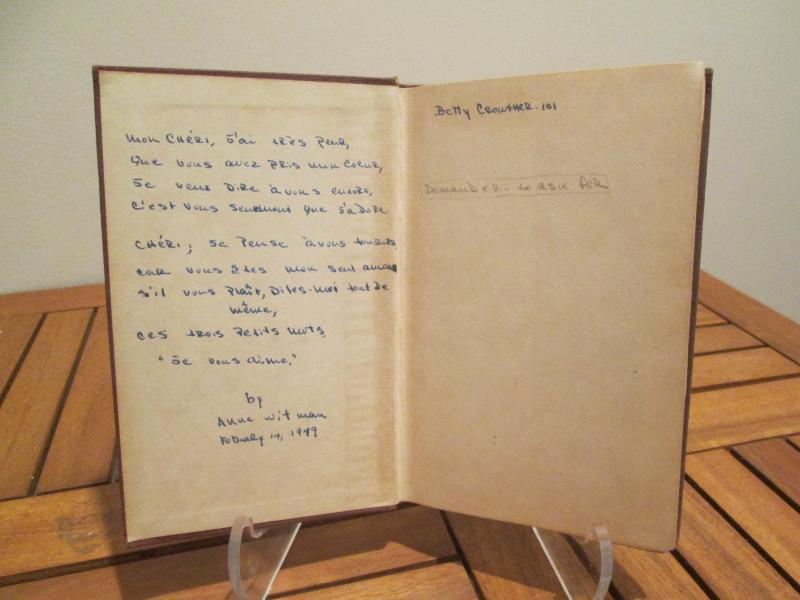 mon chéri, J'ai très peur,
que vous avez pris mon coeur,
Je veux dire à vous encore,
c'est vous seulement que j'adore
chéri, Je pense à vous toujours
car vous êtes mon seul amour
s'il vous plaît, Dites-moi tout de
même,
ces trois petits mots,
"Je vous aime."
by
Anne Witman
February 14, 1949
Betty Crowther - 101
Demander - to ask for